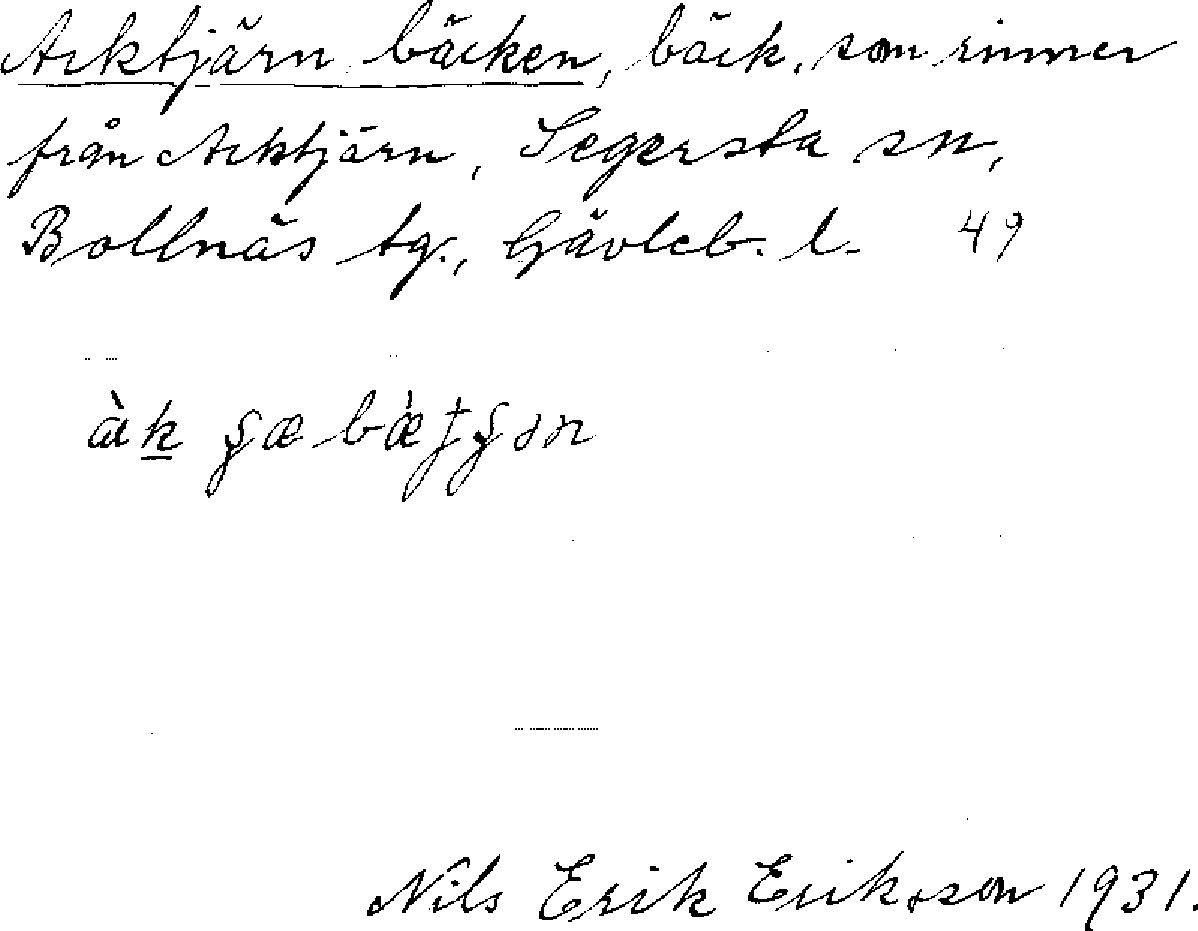 Arktjärn bäcken, bäck, som rinner
från Arktjärn, Segersta sn,
Bollnäs tg., Gävleb. l. 49
Nils Erik Eriksson 1931.